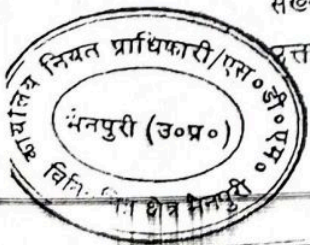 कार्यालय नियत प्राधिकारी/एस०डी०एम०
मैनपुरी (उ०प्र०)
क्षेत्र मैनपुरी